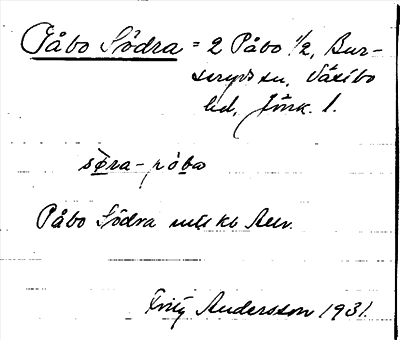 Påbo Södra = 2 Påbo 1/2, Bur-
seryds sn, Västbo
hd, Jönk. l.
søra-påbo
Påbo Södra
Fritz Andersson 1931.